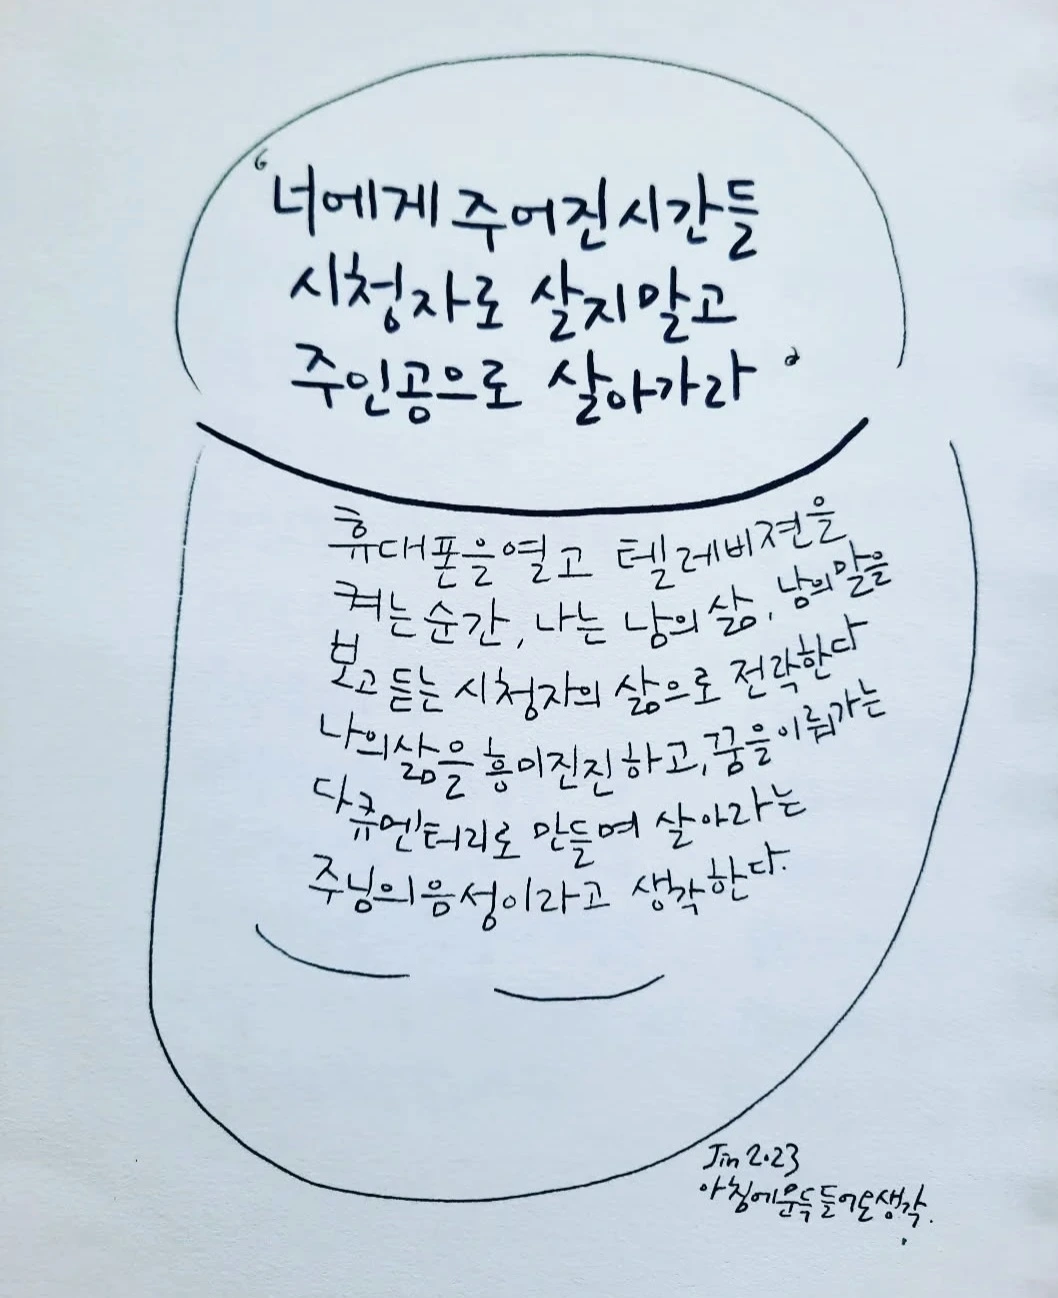 '너에게 주어진 시간들
시청자로 살지말고
주인공으로 살아가라'
휴대폰을 열고 텔레비젼을
켜는 순간, 나는 남의 삶, 남의 말을
보고 듣는 시청자의 삶으로 전락한다
나의 삶을 흥미진진하고, 꿈을 이뤄가는
다큐멘터리로 만들며 살아라는
주님의 음성이라고 생각한다.
Jin 2.23
아침에 문득 들어온 생각.